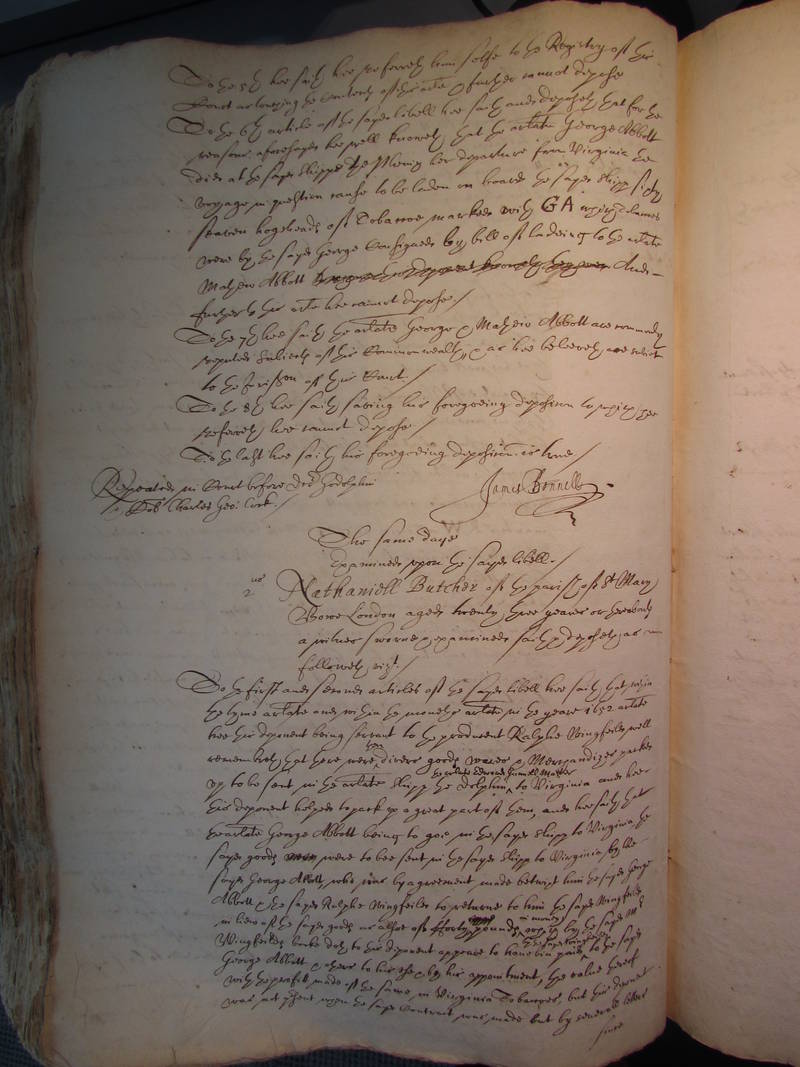 To the 5th hee saith hee referreth him selfe to the Registry of this
Court and further cannot depose
To the 6th article of the sayd libell hee saith and deposeth that for the
reasons aforesayd hee well knoweth that the arlate George Abbott
did at the sayd shipps the Phenix her departure from Virginia the
voyage in question cause to be laden on board the sayd shipp sixty
seaven hogsheads of Tobaccoe marked with GA
were by the sayd George Consigned by bill of ladeing to the arlate
Mathew Abbott And
further hee cannot depose./
To the 7th hee saith the arlate George & Mathew Abbott are commonly
reputed Subiects of this Commonwealth, & as hee beleeveth are subiect
to the Jurisdon of this Court./
To the 8th hee saith saving his foregoeing deposicon to which hee
referreth hee cannot depose/
To the last hee saith his foregoeing deposicon is true/
Repeated in Court before Dr Godolphin
Charles Geo: Cock./
James Bonnell
The same daye
Examined upon the sayd libell./
2us
Nathaniell Butcher of the parish of St Mary
Bowe London aged twenty three yeares or thereabouts
a witnes sworne & examined saith & deposeth as
followeth, vizt./
To the first and second articles of the sayd libell hee saith that within
the tyme arlate and within the moneths arlate in the yeare 1652 arlate
hee this deponent being servant to the producent Ralphe Wingfeild well
remembreth that there were divers goods wares & Merchandizes packed
the arlate Edward Master
up to be sent in the arlate shipp the Dolphin to Virginia and hee
this deponent helped to pack up a great part of them, and hee saith that
the arlate George Abbott being to goe in the sayd shipp to Virginia, the
sayd goods were to bee sent in the sayd shipp to Virginia by the
sayd George Abbott, who was by agreement made betwixt him the sayd George
Abbott & the sayd Ralphe Wingfeild to returne to him the sayd Wingfeild
in money
in liew of the sayd goods as alsoe of forty pounds by the sayd Mr
Wingfeilds booke doth to this deponent appeare to have bin paid to the sayd
George Abbott & others to his use & by his appointment, the value thereof
with the profitt made of the same in Virginia Tobaccoes, but this deponent
was not present when the sayd Contract was made but by severall letters
since